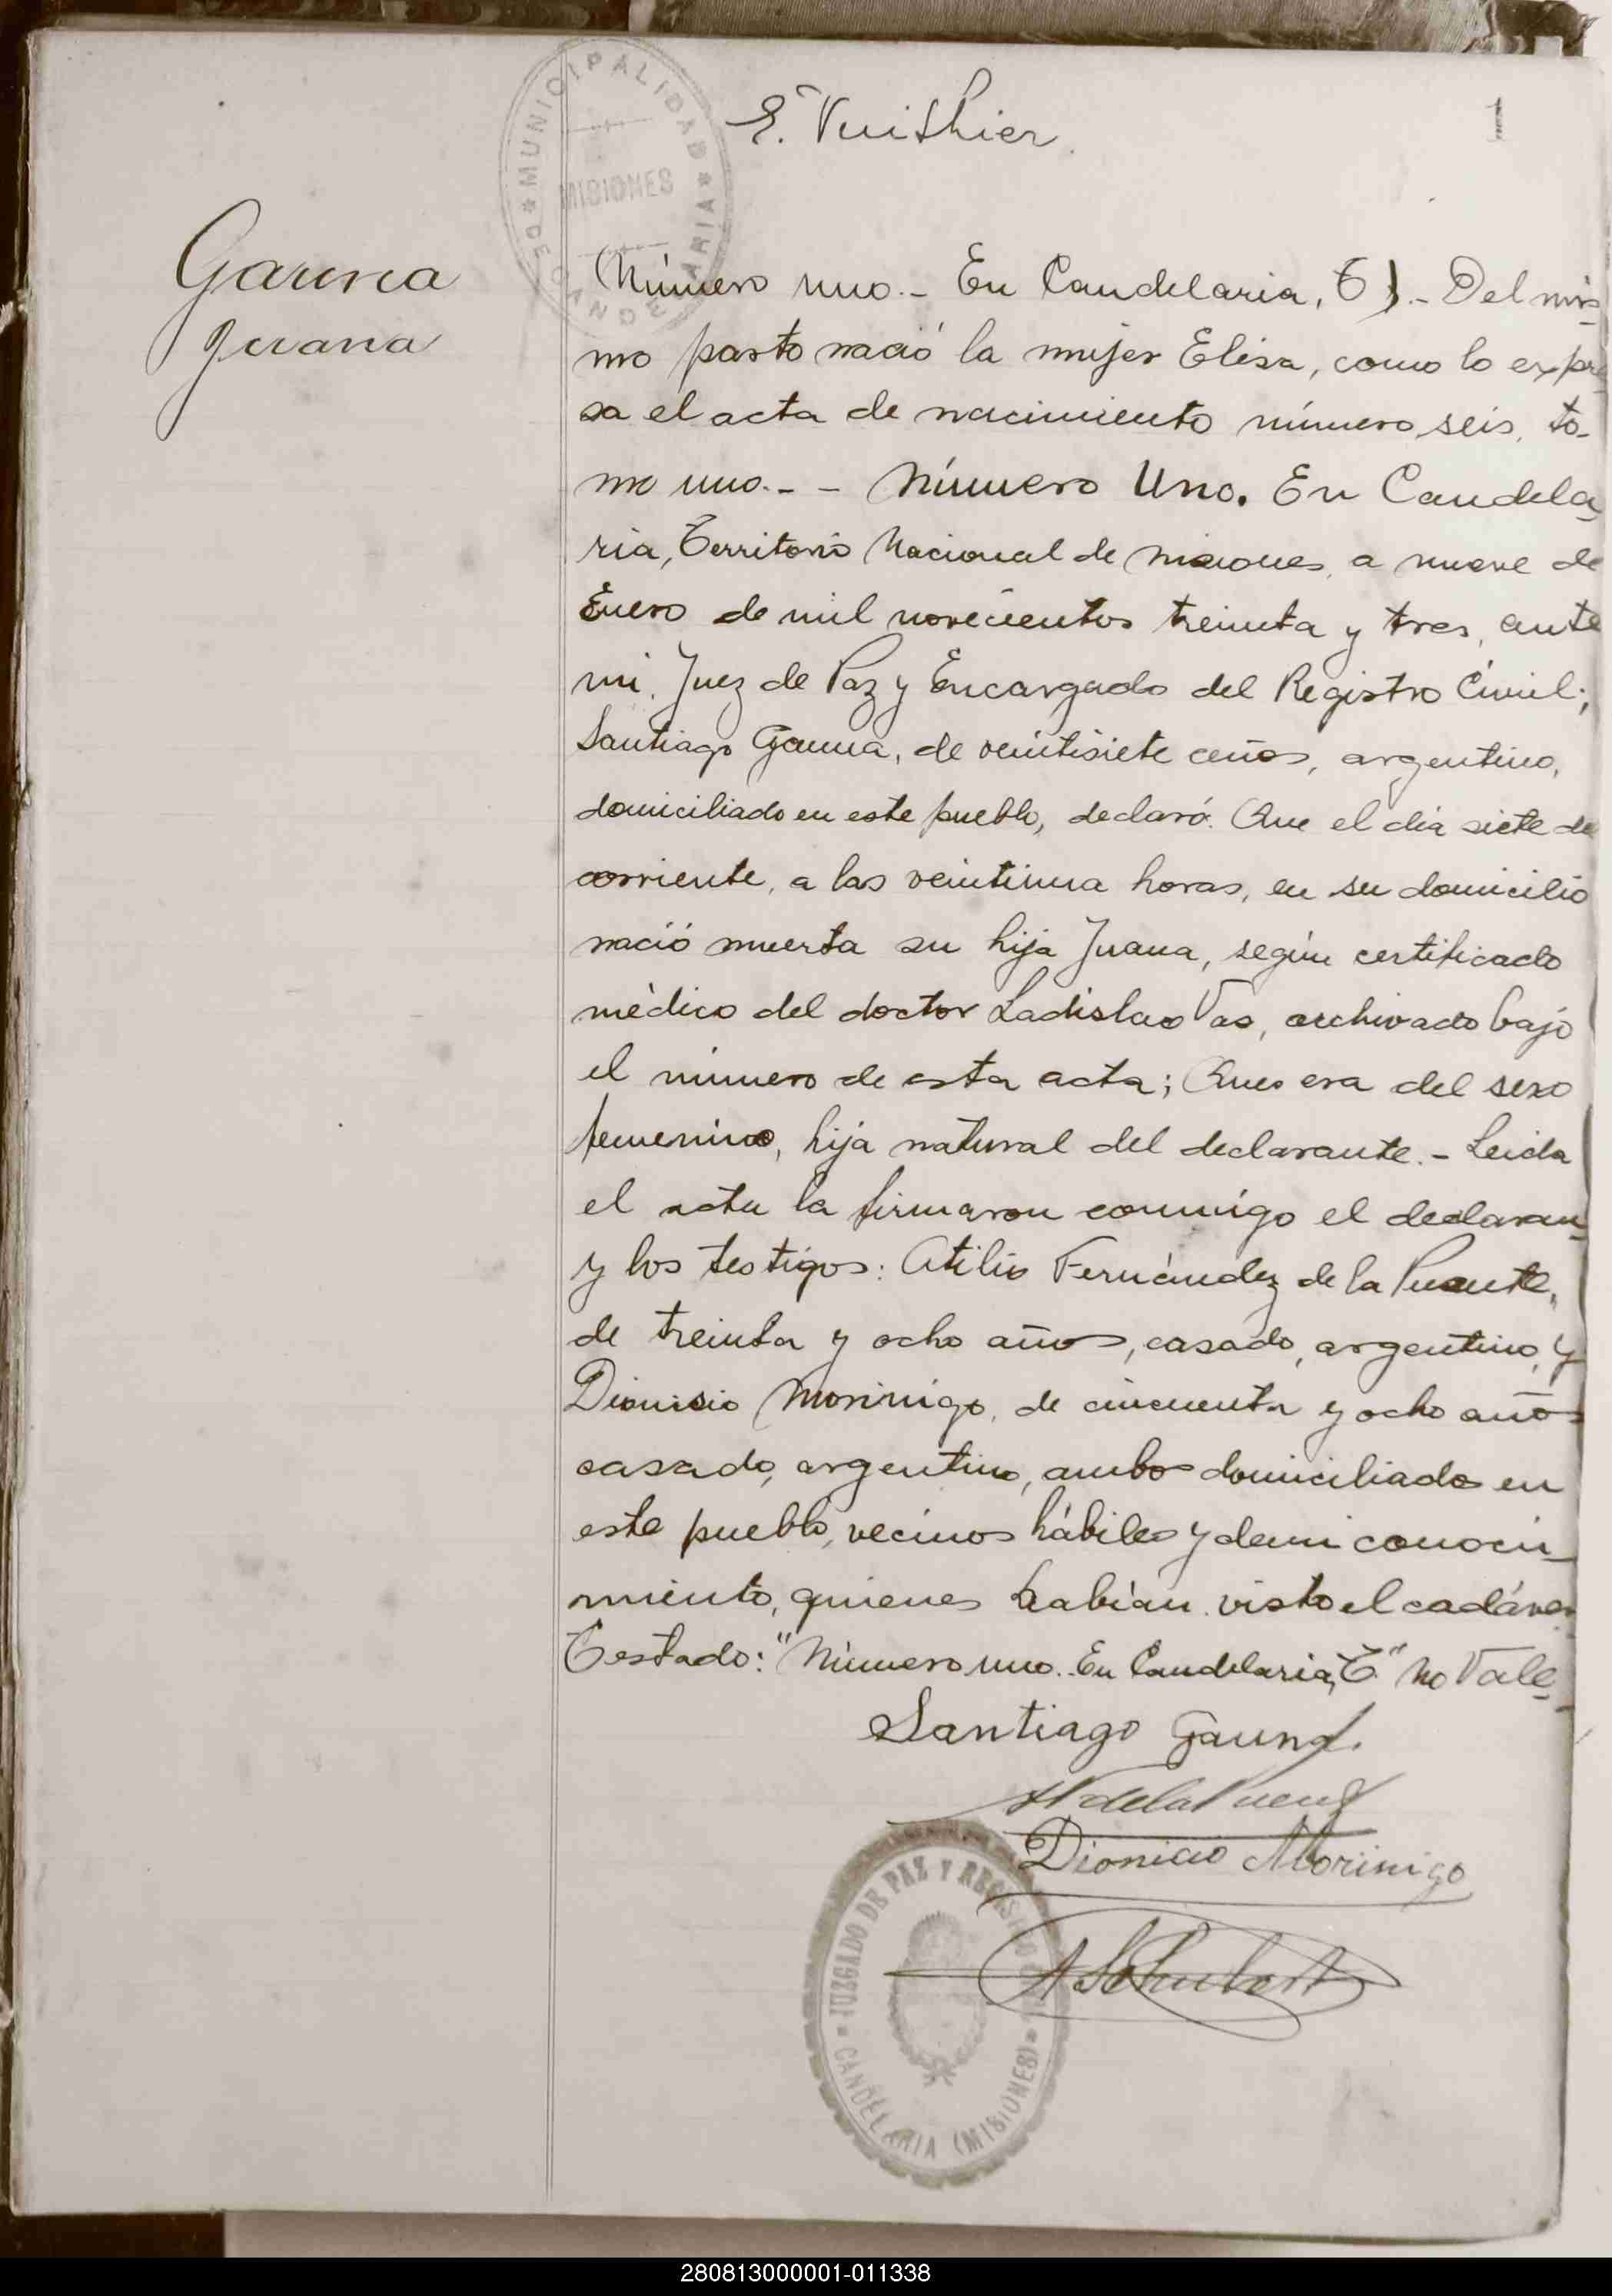 MUNICIPALIDAD DE CANDELARIA
MISIONES
E. Vuithier
1
Gauna
Juana
(Número uno.- En Candelaria, T).- Del mis-
mo parto nació la mujer Elisa, como lo expre-
sa el acta de nacimiento número seis, to-
mo uno.- - Número Uno. En Candela-
ria, Territorio Nacional de Misiones, a nueve de
Enero de mil novecientos treinta y tres, ante
mi, Juez de Paz y Encargado del Registro Civil;
Santiago Gauna, de veintisiete años, argentino,
domiciliado en este pueblo, declaró: Que el día siete del
corriente, a las veintiuna horas, en su domicilio
nació muerta su hija Juana, según certificado
médico del doctor Ladislao Vas, archivado bajo
el número de esta acta; Que era del sexo
femenino, hija natural del declarante.- Leida
el acta la firmaron conmigo el declaran-
y los testigos: Atilio Fernández de la Puente,
de treinta y ocho años, casado, argentino, y
Dionisio Morinigo, de cincuenta y ocho años
casado, argentino, ambos domiciliados en
este pueblo, vecinos hábiles y de mi conoci-
miento, quienes habían visto el cadáver
Testado: "Número uno. En Candelaria, T" No Vale.-
Santiago Gauna.
Dionicio Morinigo
A Schubert
JUZGADO DE PAZ Y REGISTRO
CANDELARIA (MISIONES)
280813000001-011338